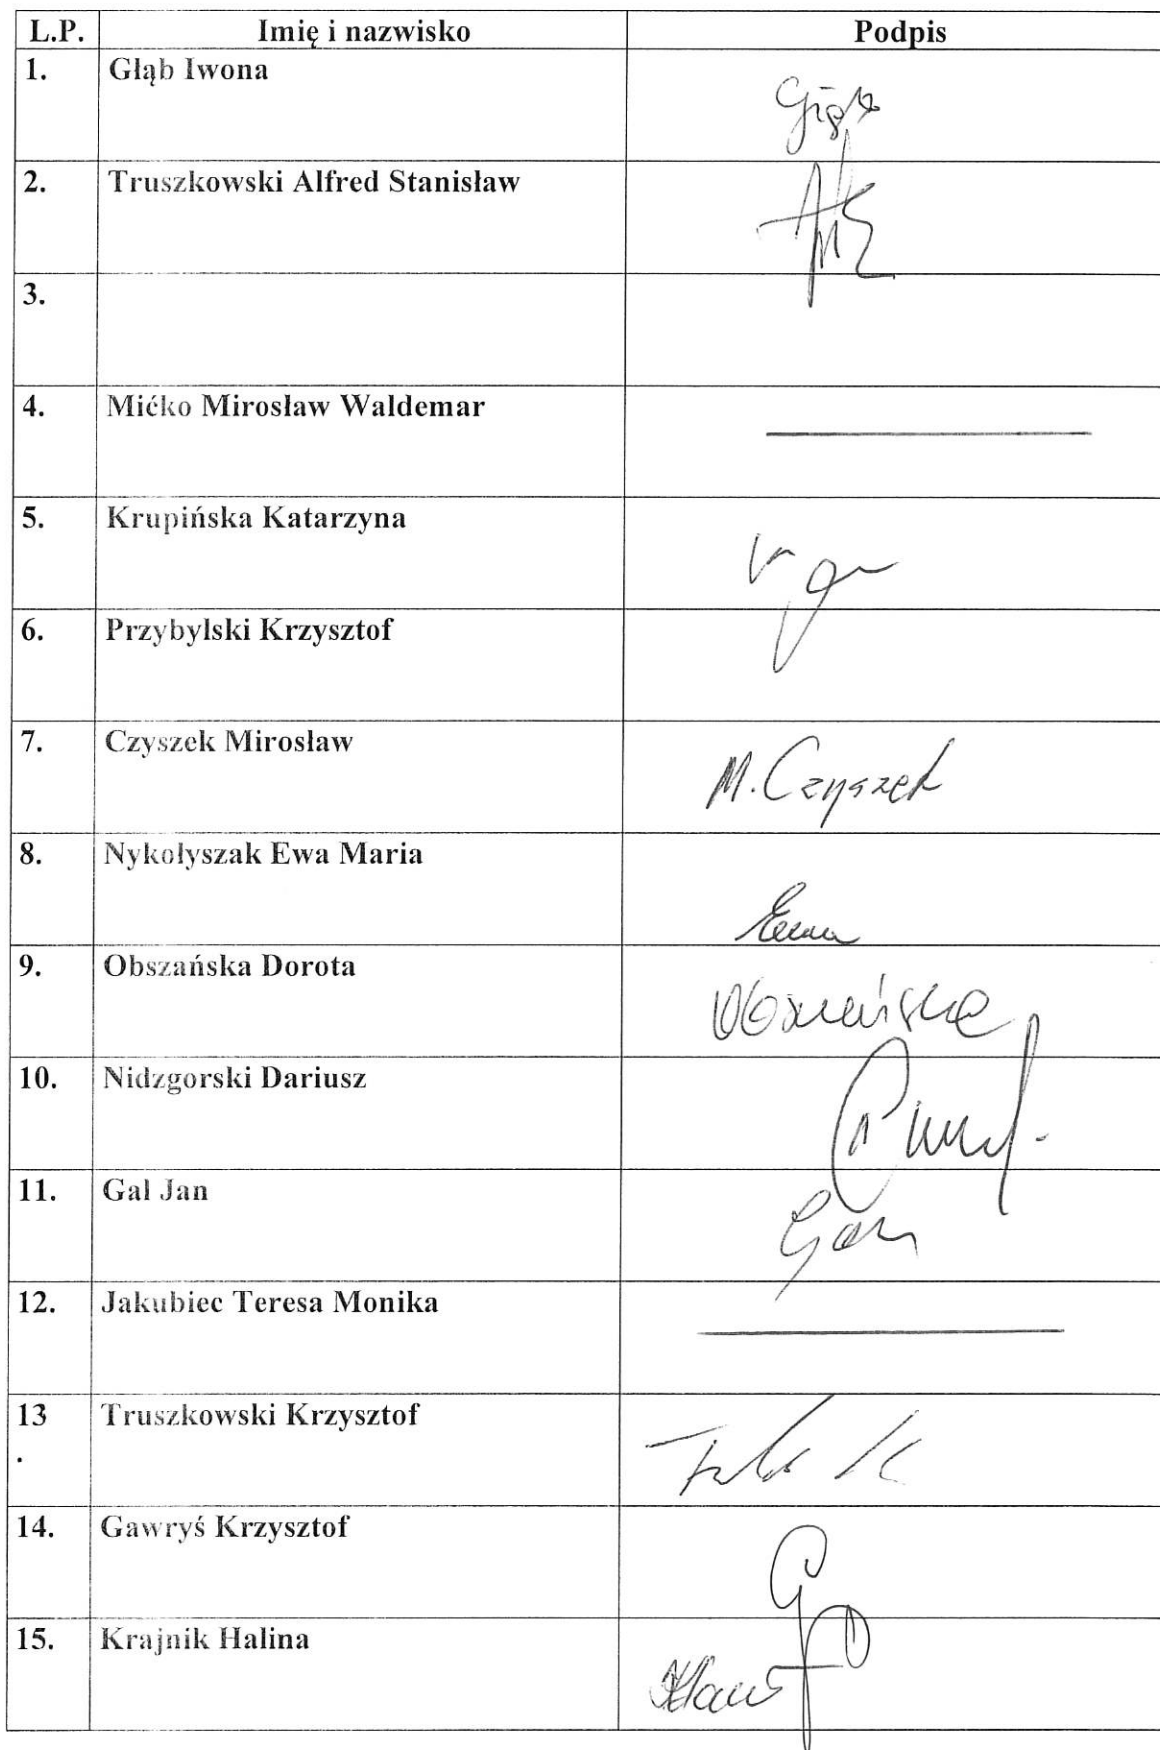 L.P. Imię i nazwisko Podpis
1. Głąb Iwona
2. Truszkowski Alfred Stanisław
3.
4. Mićko Mirosław Waldemar
5. Krupińska Katarzyna
6. Przybylski Krzysztof
7. Czyszek Mirosław M. Czyszek
8. Nykołyszak Ewa Maria
9. Obszańska Dorota Obszańska
10. Nidzgorski Dariusz
11. Gal Jan
12. Jakubiec Teresa Monika
13
.
Truszkowski Krzysztof
14. Gawryś Krzysztof
15. Krajnik Halina